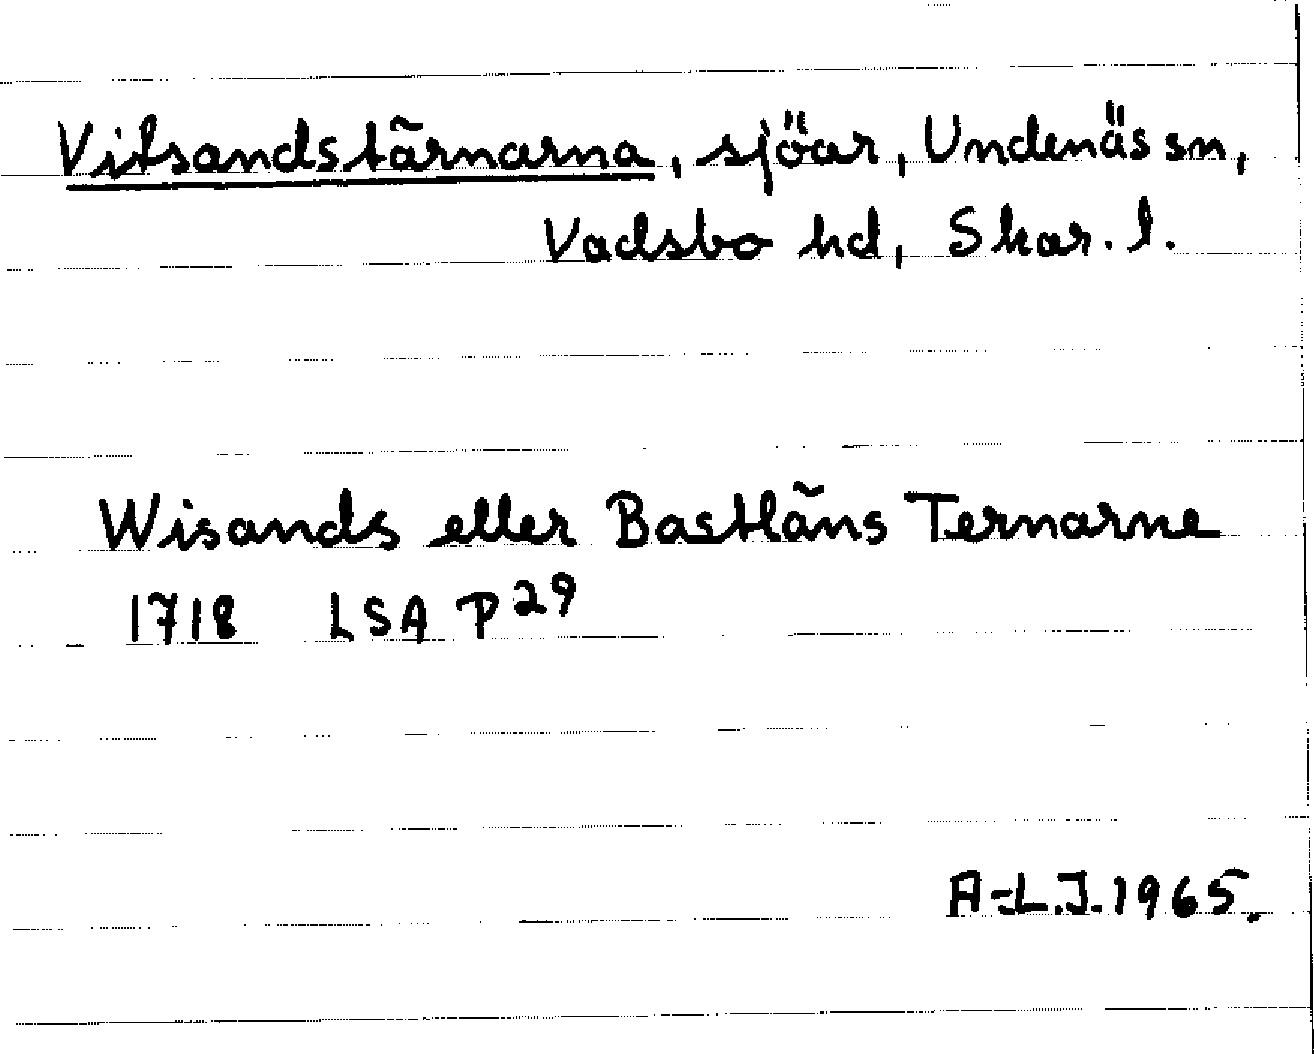 Vitsandstärnarna, sjöar, Undenäs sn,
Vadsbo hd, Skar. l.
Wisands eller Bastläns Ternarne
1718 LSA P29
A-L.J. 1965.